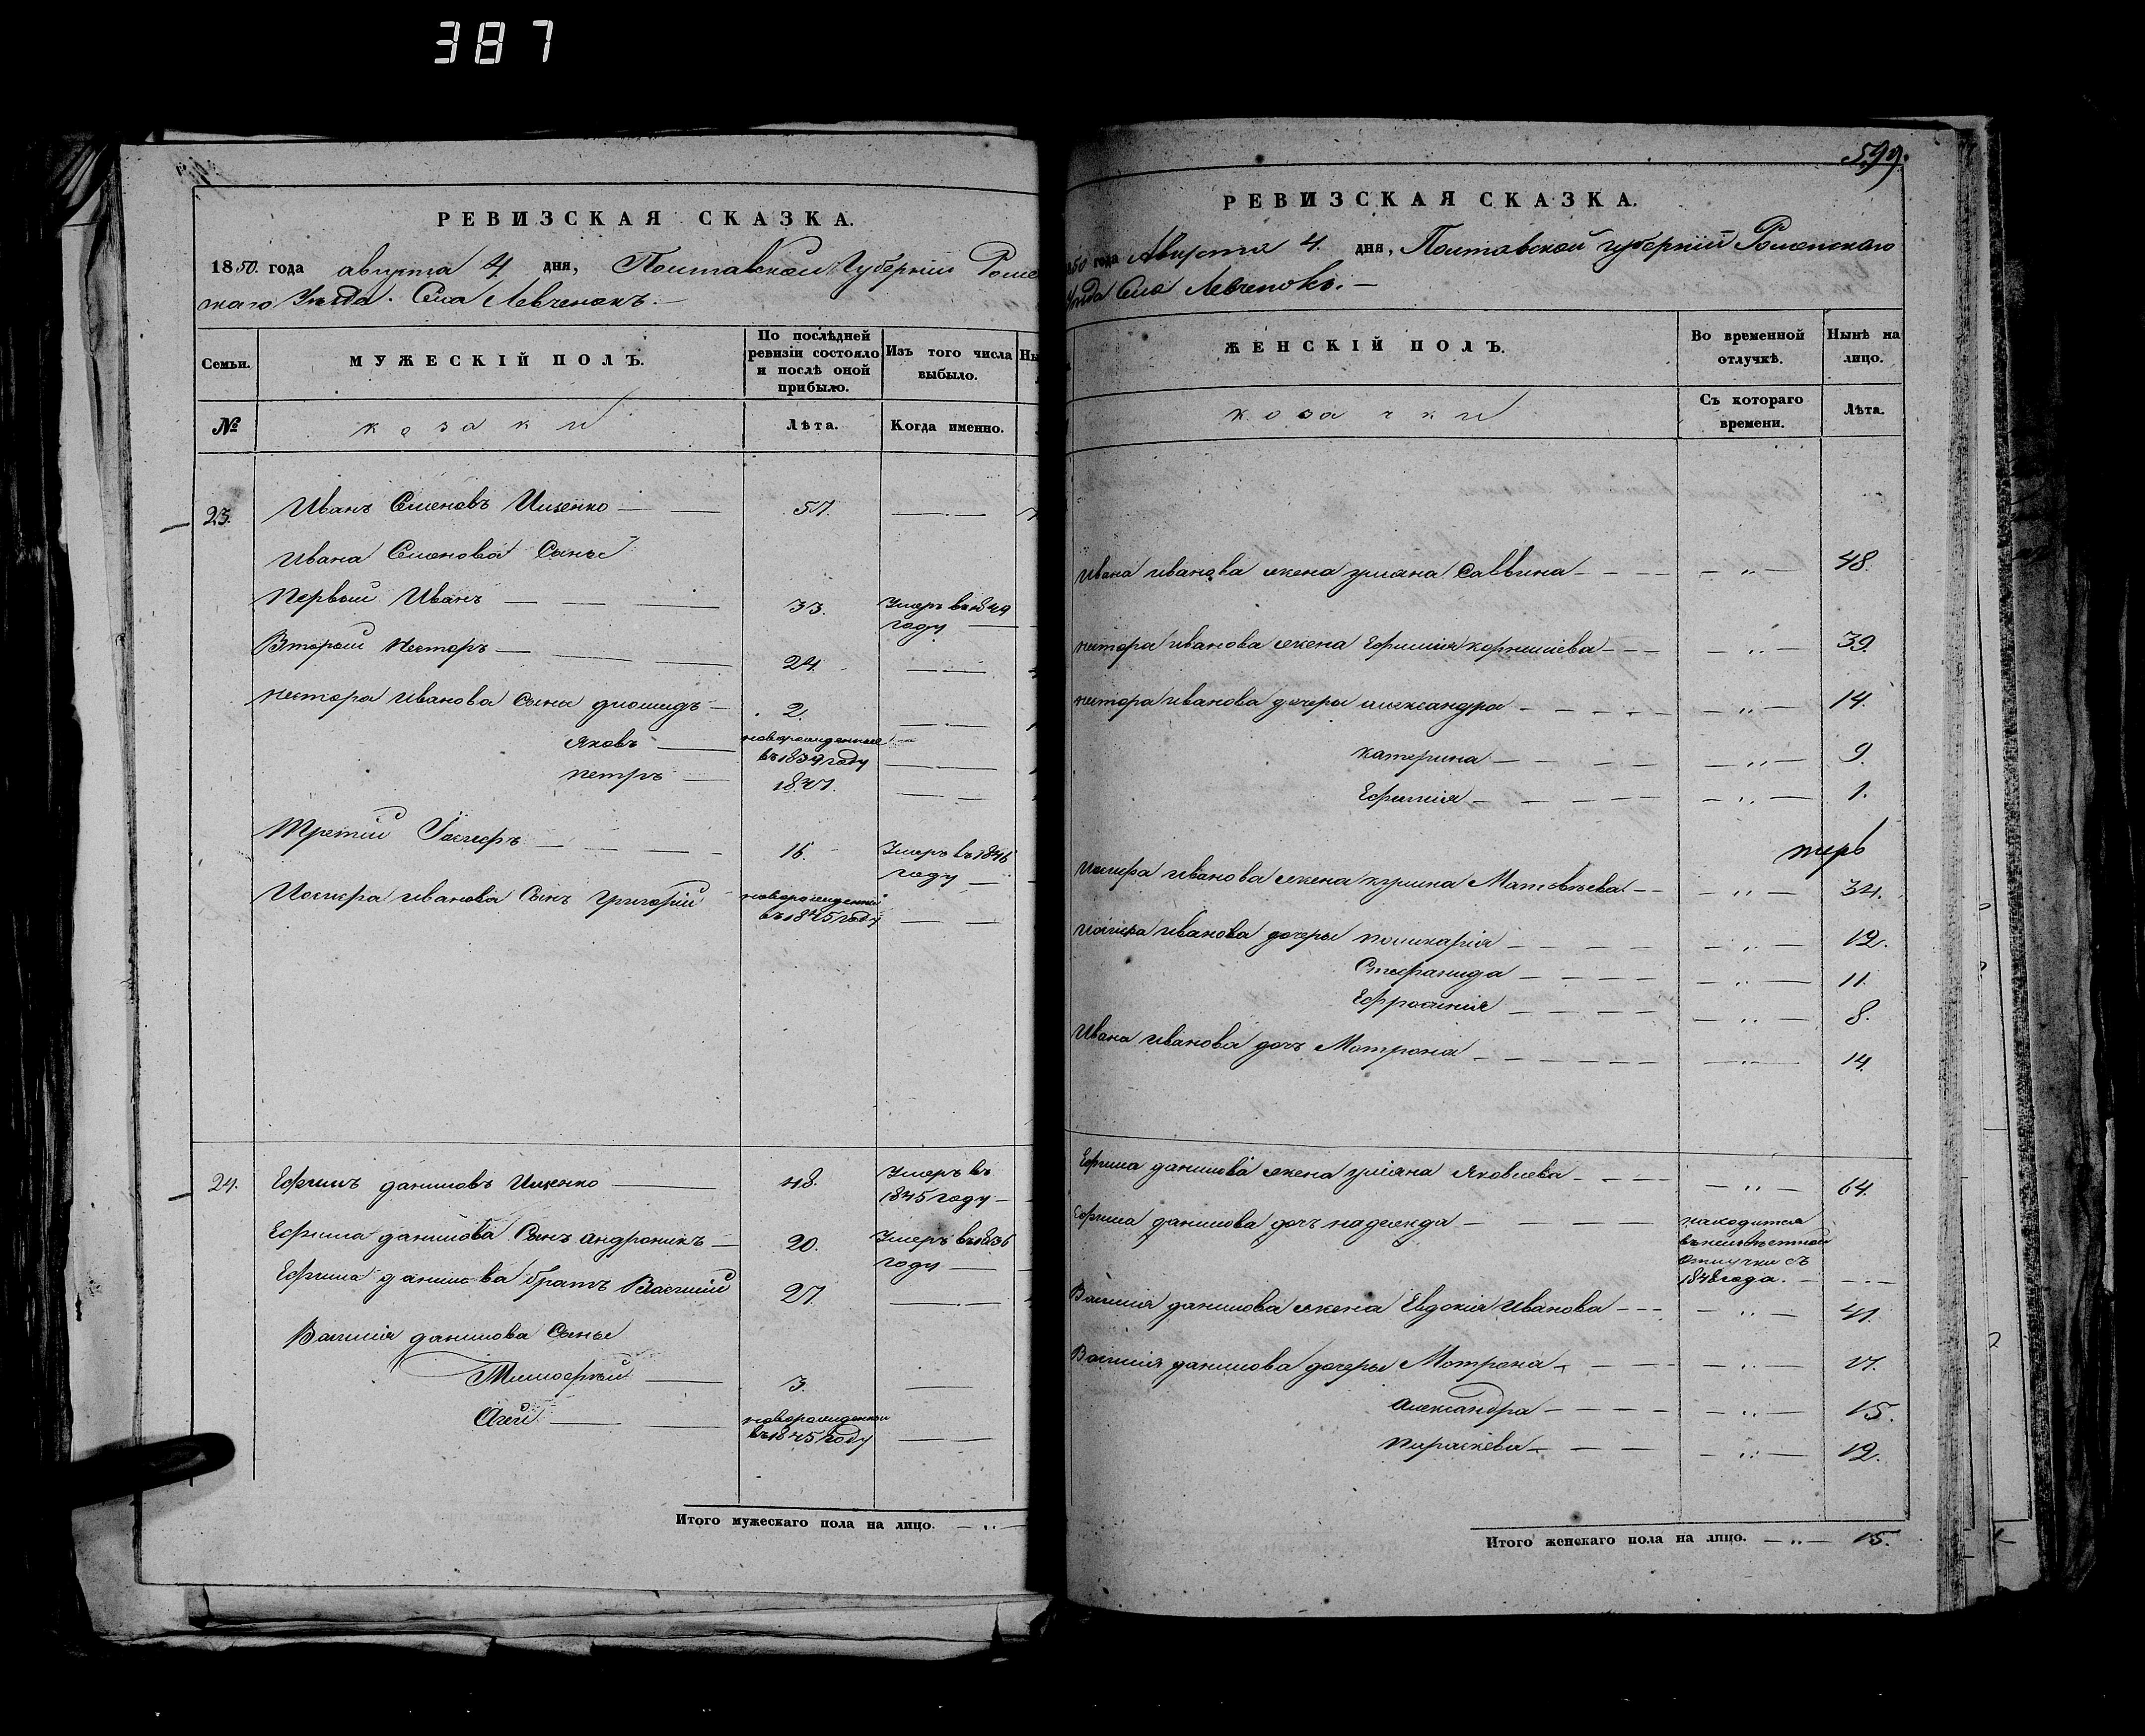 387
РЕВИЗСКАЯ СКАЗКА.
1850. года августа 4 дня, Полтавской Губерніи Роме
скаго Уѣзда. Села Левченокъ.
Семьи.
МУЖЕСКІЙ ПОЛЪ.
По послѣдней
ревизіи состояло
и послѣ оной
прибыло.
Изъ того числа
выбыло.
№
козаки
Лѣта.
Когда именно.
23. Иванъ Семеновъ Ищенко 57.
Ивана Семенова Сынъ
Первый Иванъ 33. Умеръ въ 1849
году
Второй Несторъ 24.
Нестора Иванова Сыны Диомидъ 2.
Яковъ новорожденные
въ 1839 году
Петръ 1847.
Третій Іосифъ 16. Умеръ въ 1846
году
Иосифа Иванова Сынъ Григорій новорожденный
въ 1845 году
24. Ефимъ Даниловъ Ищенко 48. Умеръ въ
1845 году
Ефима Данилова Сынъ Андроникъ 20. Умеръ въ 1836
году
Ефима Данилова братъ Василий 27.
Василия Данилова Сыны
3.
Агей новорожденный
въ 1845 году
Итого мужескаго пола на лицо.
599.
РЕВИЗСКАЯ СКАЗКА.
1850 года Августа 4. дня, Полтавской губерніи Роменскаго
Уѣзда Села Левченокъ.
ЖЕНСКІЙ ПОЛЪ.
Во временной
отлучкѣ.
Нынѣ на
лицо.
козачки
Съ котораго
времени.
Лѣта.
Ивана Иванова жена Улиана Саввина 48.
Нестора Иванова жена Ефимия Корнилиева 39.
Нестора Иванова дочери Александра 14.
Катерина 9.
Ефимия 1.
Иосифа Иванова жена Матвѣева 34.
Иосифа Иванова дочери Поликарпия 12.
Стефанида 11.
Ефросиния 8.
Ивана Иванова дочь Мотрона 14.
Ефима Данилова жена Улияна Яковлева 64.
Ефима Данилова дочь Надежда находится
отлучки съ
1848 года.
Василия Данилова жена Евдокия Иванова 41.
Василия Данилова дочери Мотрона 17.
Александра 15.
Параскева 12.
Итого женскаго пола на лицо. 15.